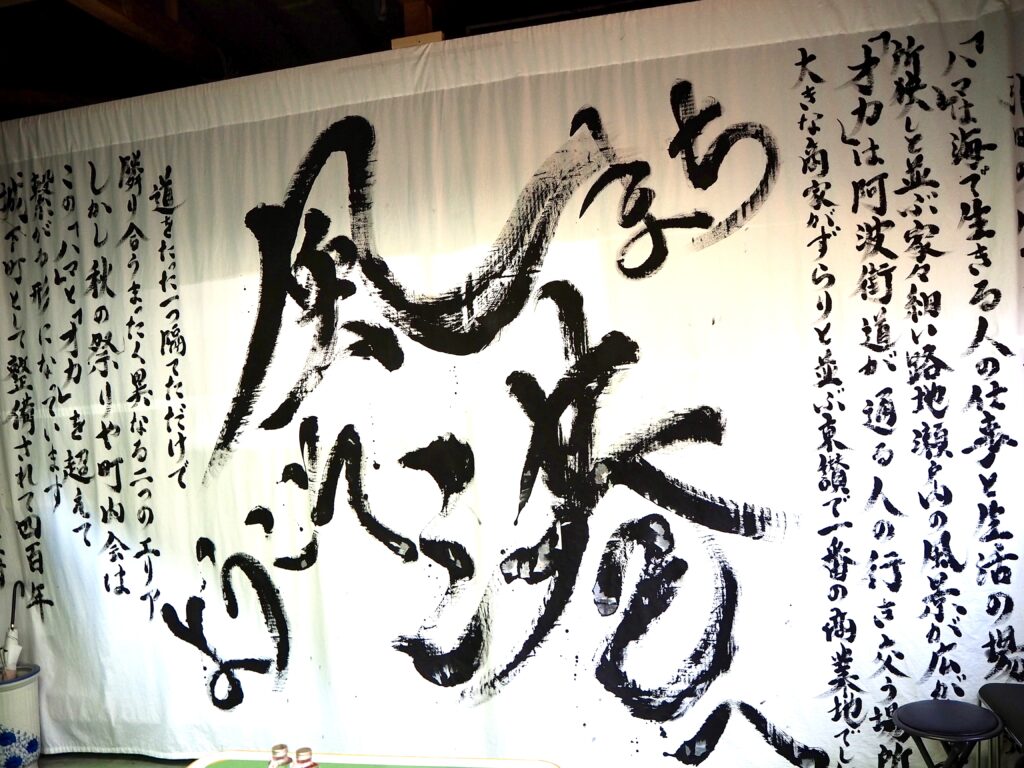 「ハマ」は海で生きる人の仕事と生活の場
所狭しと並ぶ家々細い路地瀬戸内の風景が広が
「オカ」は阿波街道が通る人の行き交う場所
大きな商家がずらりと並ぶ東讃で一番の商業地でし
まち
風
港へ
道をたった一つ隔てただけで
隣り合うまったく異なる二つのエリヤ
しかし秋の祭りや町内会は
この「ハマ」と「オカ」を超えて
繋がる形になっています
城下町として整備されて四百年